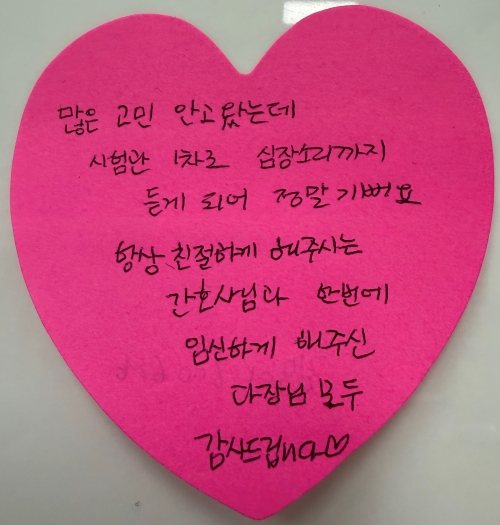 많은 고민 안고 왔는데
시험관 1차로 심장소리까지
듣게 되어 정말 기뻐요
항상 친절하게 해주시는
간호사님과 한번에
임신하게 해주신
다장님 모두
감사드립니다♡